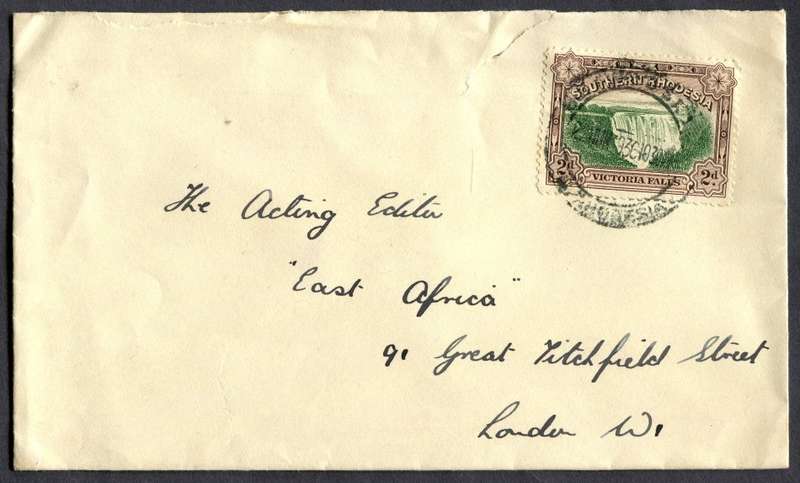 SOUTHERN RHODESIA
2d. VICTORIA FALLS 2d.
The Acting Editor
"East Africa"
91 Great Titchfield Street
London W1